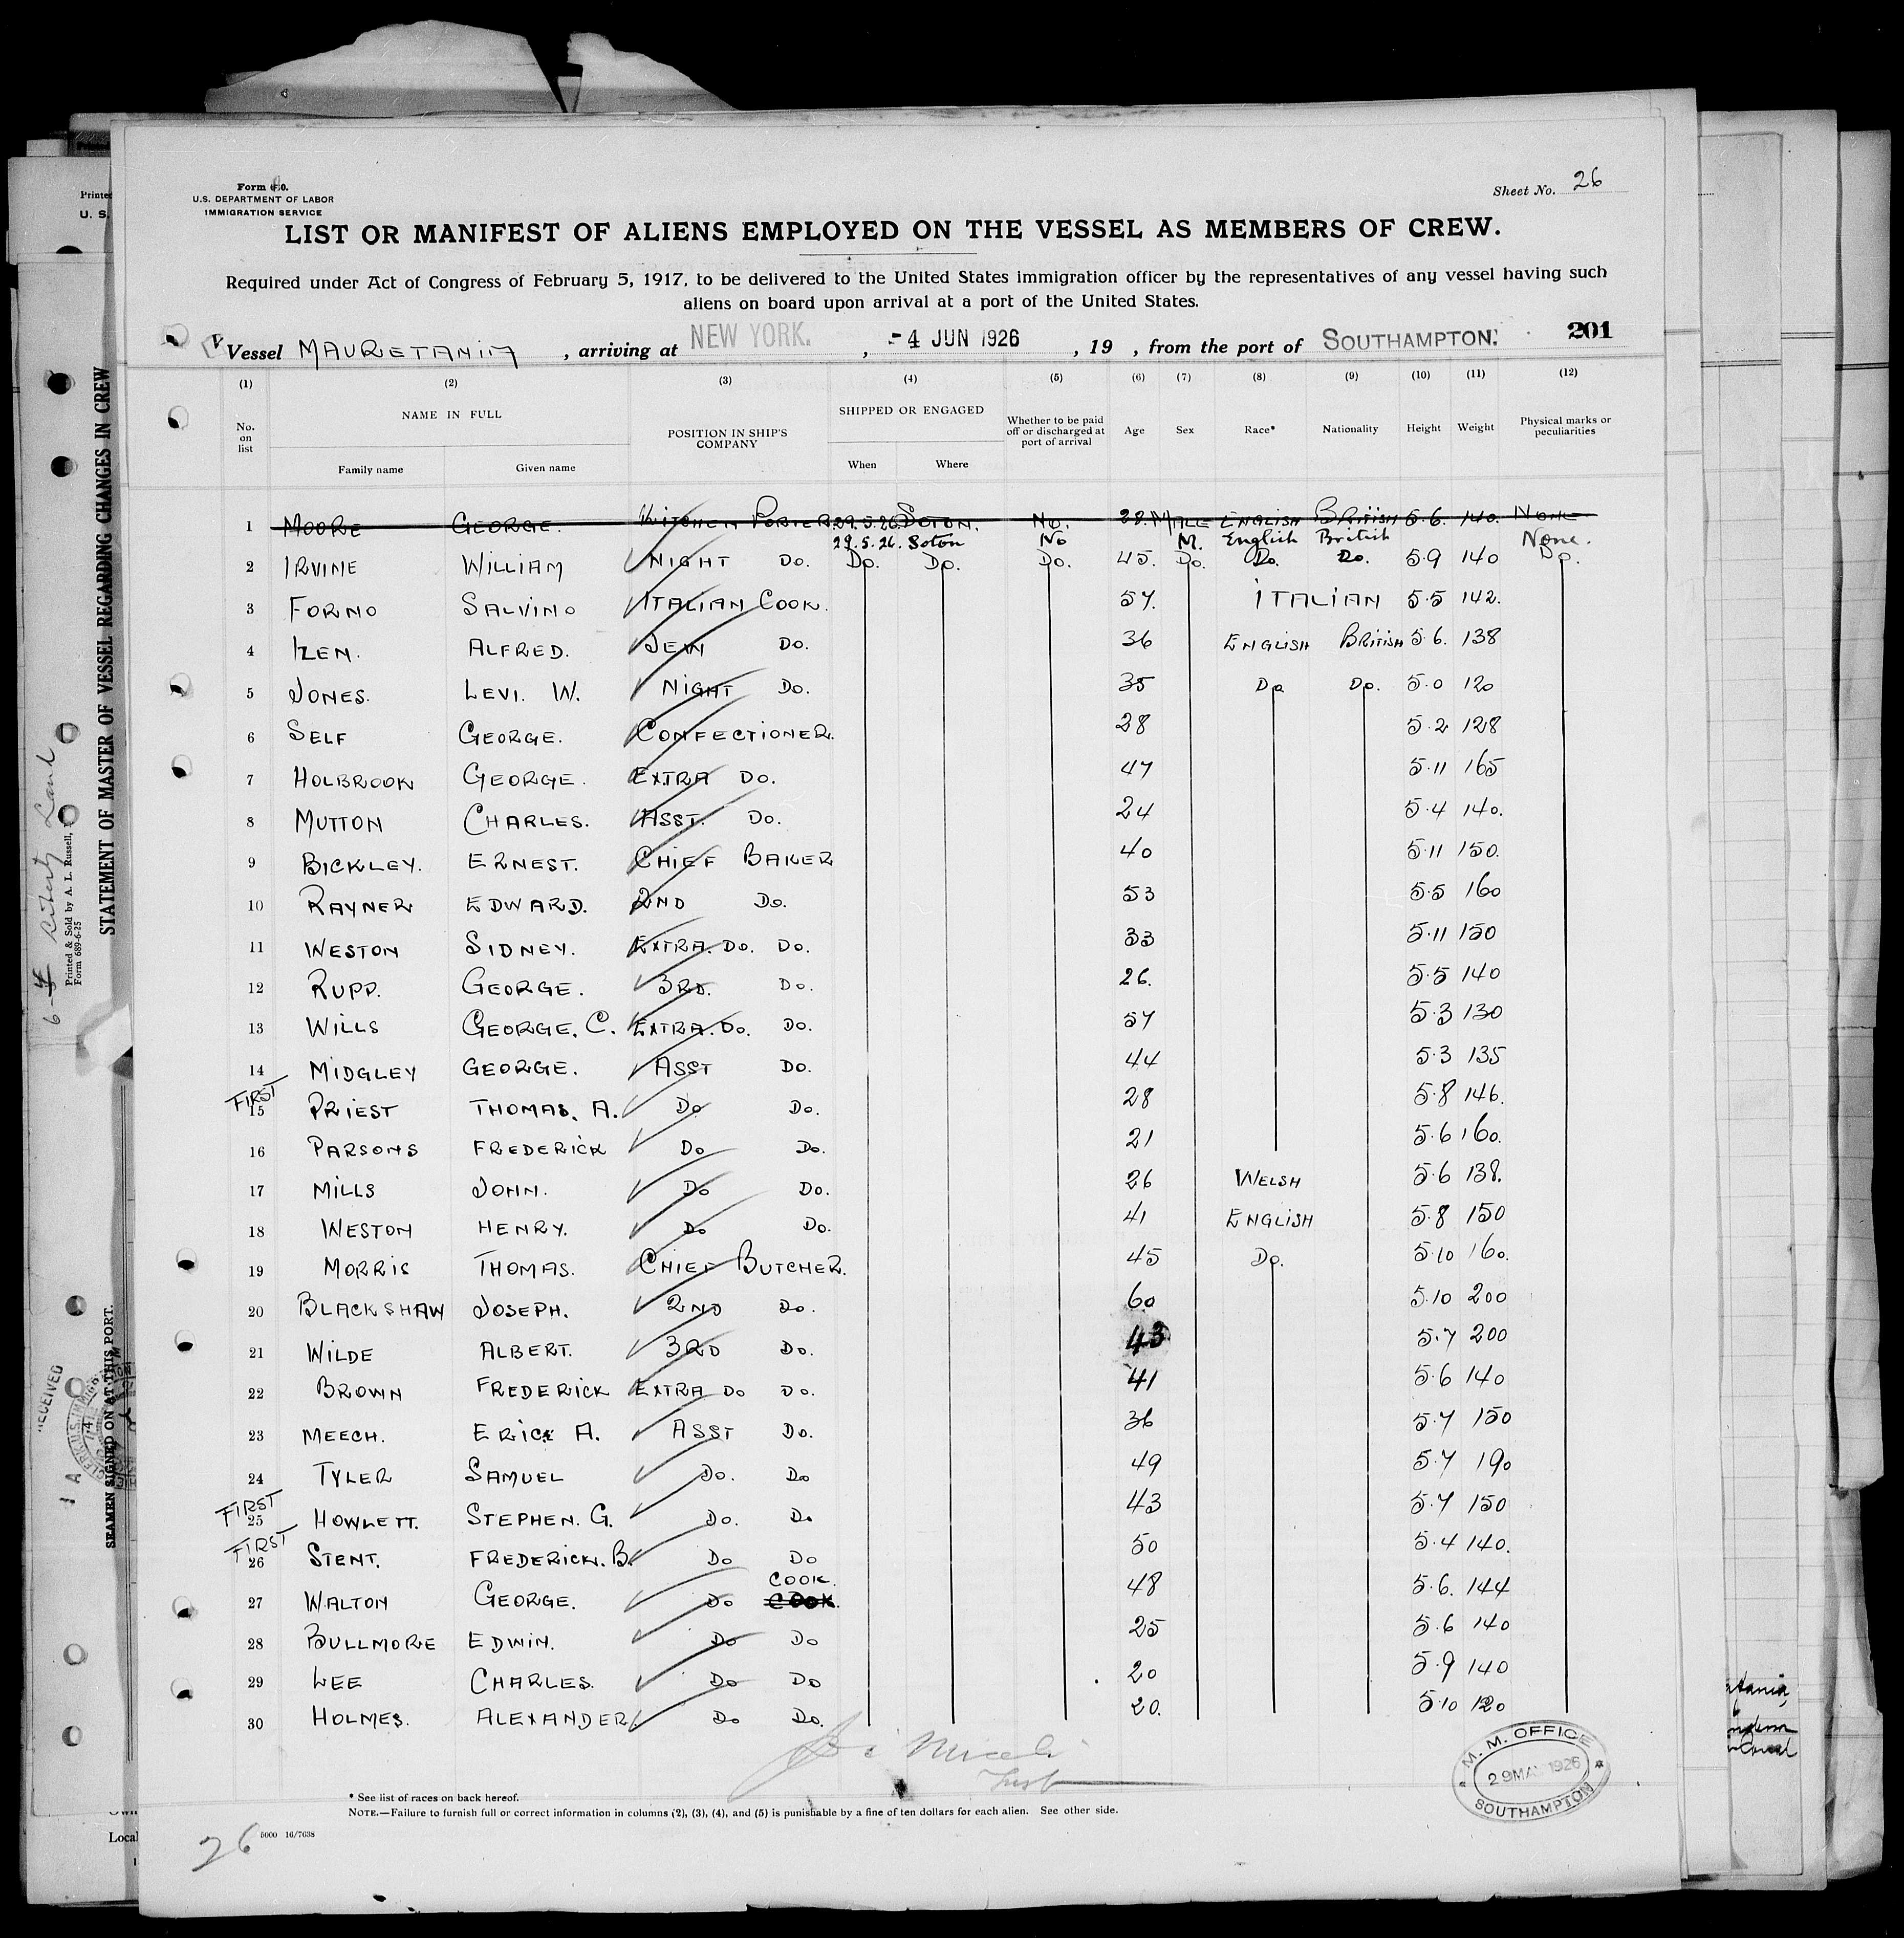 Form 680.
U.S. DEPARTMENT OF LABOR
IMMIGRATION SERVICE
Sheet No. 26
LIST OR MANIFEST OF ALIENS EMPLOYED ON THE VESSEL AS MEMBERS OF CREW.
Required under Act of Congress of February 5, 1917, to be delivered to the United States immigration officer by the representatives of any vessel having such
aliens on board upon arrival at a port of the United States.
Vessel MAURETANIA, arriving at NEW YORK., -4 JUN 1926, 19 , from the port of SOUTHAMPTON. 201
(1) (2) (3) (4) (5) (6) (7) (8) (9) (10) (11) (12)
No. on list NAME IN FULL Family name Given name POSITION IN SHIP'S COMPANY SHIPPED OR ENGAGED When Where Whether to be paid off or discharged at port of arrival Age Sex Race* Nationality Height Weight Physical marks or peculiarities
1 MOORE GEORGE. KITCHEN PORTER 29.5.26 SOTON. NO. 28. MALE ENGLISH BRITISH 5.6. 140. NONE
29.5.26. Soton No M. English British None.
2 IRVINE WILLIAM NIGHT DO. DO. DO. DO. 45. DO. DO. DO. 5.9 140 DO.
3 FORNO SALVINO ITALIAN COOK. 57. ITALIAN 5.5 142.
4 IZEN. ALFRED. JEW DO. 36 ENGLISH BRITISH 5.6. 138
5 JONES. LEVI. W. NIGHT DO. 35 DO DO. 5.0 120
6 SELF GEORGE. CONFECTIONER. 28 5.2 128
7 HOLBROOK GEORGE. EXTRA DO. 47 5.11 165
8 MUTTON CHARLES. ASST. DO. 24 5.4 140.
9 BICKLEY. ERNEST. CHIEF BAKER 40 5.11 150.
10 RAYNER EDWARD. 2ND DO. 53 5.5 160
11 WESTON SIDNEY. EXTRA. DO. DO. 33 5.11 150
12 RUPP. GEORGE. 3RD. DO. 26. 5.5 140
13 WILLS GEORGE. C. EXTRA. DO. DO. 57 5.3 130
14 MIDGLEY GEORGE. ASST DO. 44 5.3 135
FIRST
15 PRIEST THOMAS. A. DO DO. 28 5.8 146.
16 PARSONS FREDERICK DO DO. 21 5.6 160.
17 MILLS JOHN. DO DO. 26 WELSH 5.6 138.
18 WESTON HENRY. DO DO. 41 ENGLISH 5.8 150
19 MORRIS THOMAS. CHIEF BUTCHER. 45 DO. 5.10 160.
20 BLACKSHAW JOSEPH. 2ND DO. 60 5.10 200
21 WILDE ALBERT. 3RD DO. 43 5.7 200
22 BROWN FREDERICK EXTRA DO DO. 41 5.6 140
23 MEECH. ERIC A. ASST DO. 36 5.7 150
24 TYLER SAMUEL DO. DO 49 5.7 190
FIRST
25 HOWLETT. STEPHEN. G. DO. DO 43 5.7 150
FIRST
26 STENT. FREDERICK. B. DO DO 50 5.4 140.
COOK.
27 WALTON GEORGE. DO COOK. 48 5.6. 144
28 BULLMORE EDWIN. DO DO 25 5.6 140
29 LEE CHARLES. DO DO 20 5.9 140
30 HOLMES. ALEXANDER. DO DO. 20. 5.10 120
M. M. OFFICE
29 MAY 1926
SOUTHAMPTON
* See list of races on back hereof.
NOTE.—Failure to furnish full or correct information in columns (2), (3), (4), and (5) is punishable by a fine of ten dollars for each alien. See other side.
26 5000 16/7638
STATEMENT OF MASTER OF VESSEL REGARDING CHANGES IN CREW
Printed & Sold by A. I. Russell,
Form 689-6-25
SEAMEN SIGNED ON AT THIS PORT.
Printed
U. S.
Local